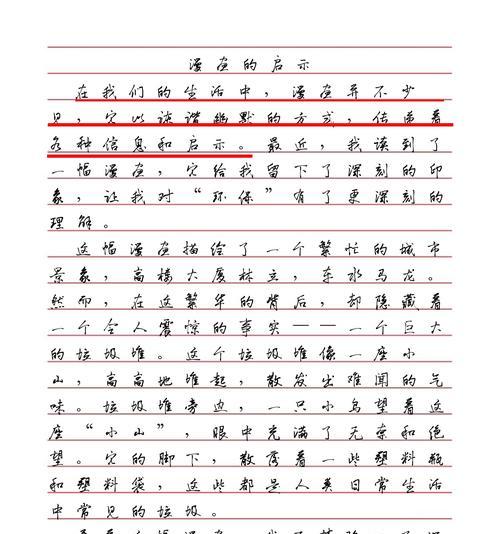 漫画的启示
在我们的生活中，漫画并不少
见，它以诙谐幽默的方式，传递着
各种信息和启示。最近，我读到了
一幅漫画，它给我留下了深刻的印
象，让我对“环保”有了更深刻的
理解。
这幅漫画描绘了一个繁忙的城市
景象，高楼大厦林立，车水马龙。
然而，在这繁华的背后，却隐藏着
一个令人震惊的事实——一个巨大
的垃圾堆。这个垃圾堆像一座小
山，高高地堆起，散发出难闻的气
味。垃圾堆旁边，一只小鸟望着这
座“小山”，眼中充满了无奈和绝
望。它的脚下，散落着一些塑料瓶
和塑料袋，这些都是人类日常生活
中常见的垃圾。